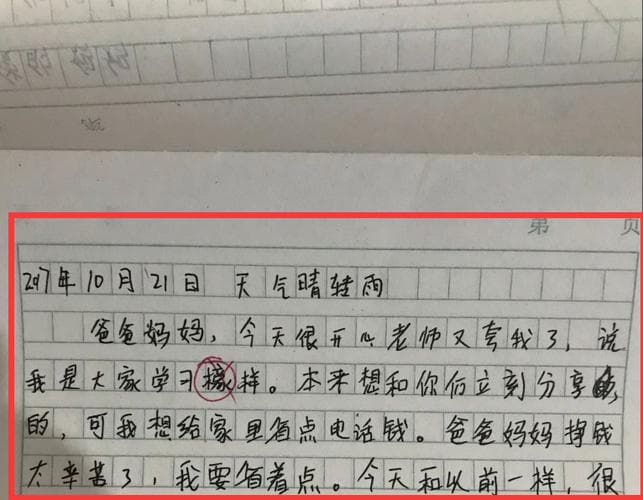 第 页
2017年10月21日 天气晴转雨
爸爸妈妈，今天很开心老师又夸我了，说
我是大家学习榜样。本来想和你们立刻分享
的，可我想给家里省点电话钱。爸爸妈妈挣钱
太辛苦了，我要省着点。今天和以前一样，很